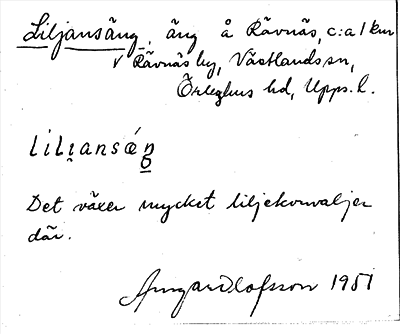 Liljansäng, äng å Rävnäs, c:a 1 km
v Rävnäs by, Västlands sn,
Örbyhus hd, Upps. l.
liljansäŋ
Det växer mycket liljekonvaljer
där.
Olofsson 1951